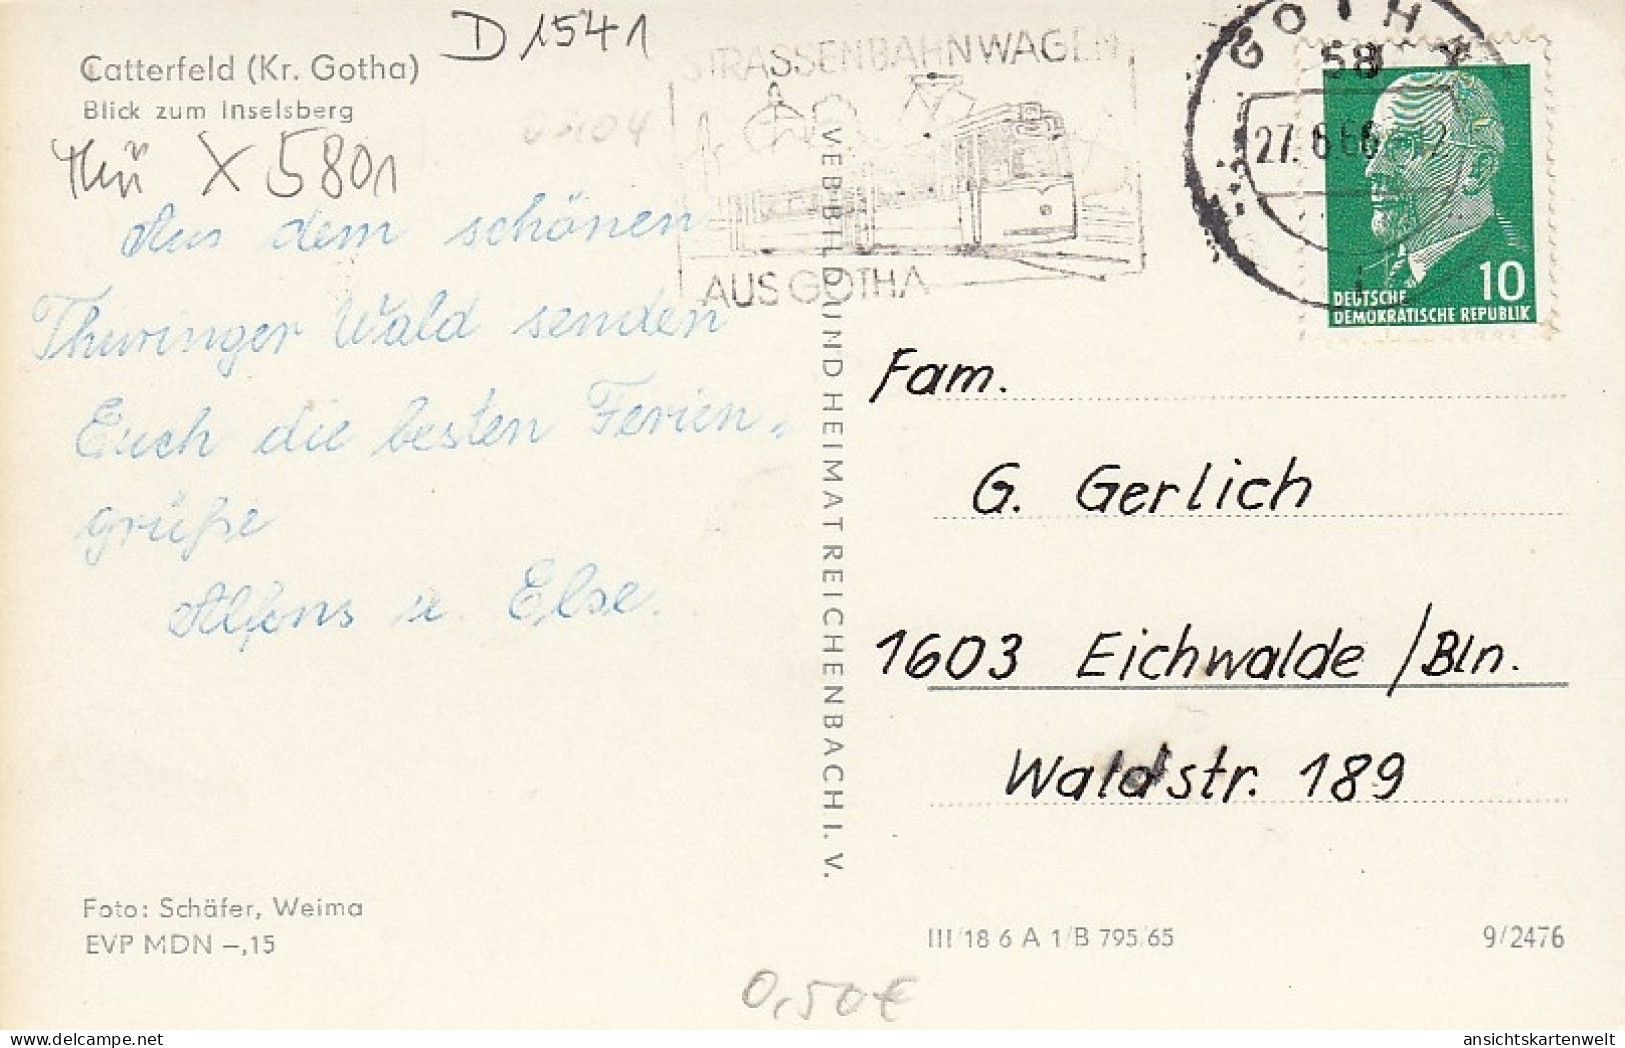 Catterfeld (Kr. Gotha)
Blick zum Inselsberg
D 1541
Thü X 5801
STRASSENBAHNWAGEN
AUS GOTHA
GOTHA
58
27.6.66
DEUTSCHE
DEMOKRATISCHE REPUBLIK
10
Aus dem schönen
Thüringer Wald senden
Euch die besten Ferien-
grüße
Alfons u. Else.
VEB BILD UND HEIMAT REICHENBACH I. V.
Fam.
G. Gerlich
1603 Eichwalde /Bln.
Waldstr. 189
Foto: Schäfer, Weima
EVP MDN –,15
III/18 6 A 1/B 795/65
9/2476
0,50€
ansichtskartenwelt